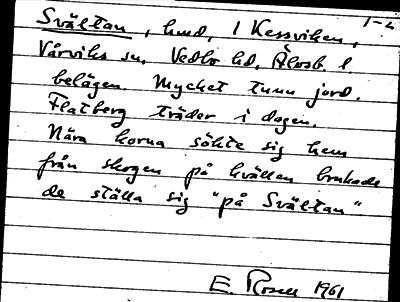 1-2
Svältan, hmd, i Kessviken,
Vårviks sn, Vedbo hd, Älvsb. l.
belägen. Mycket tunn jord.
Flatberg träder i dagen.
Nära korna sökte sig hem
från skogen på kvällen brukade
de ställa sig "på Svältan"
E. Rosell 1961